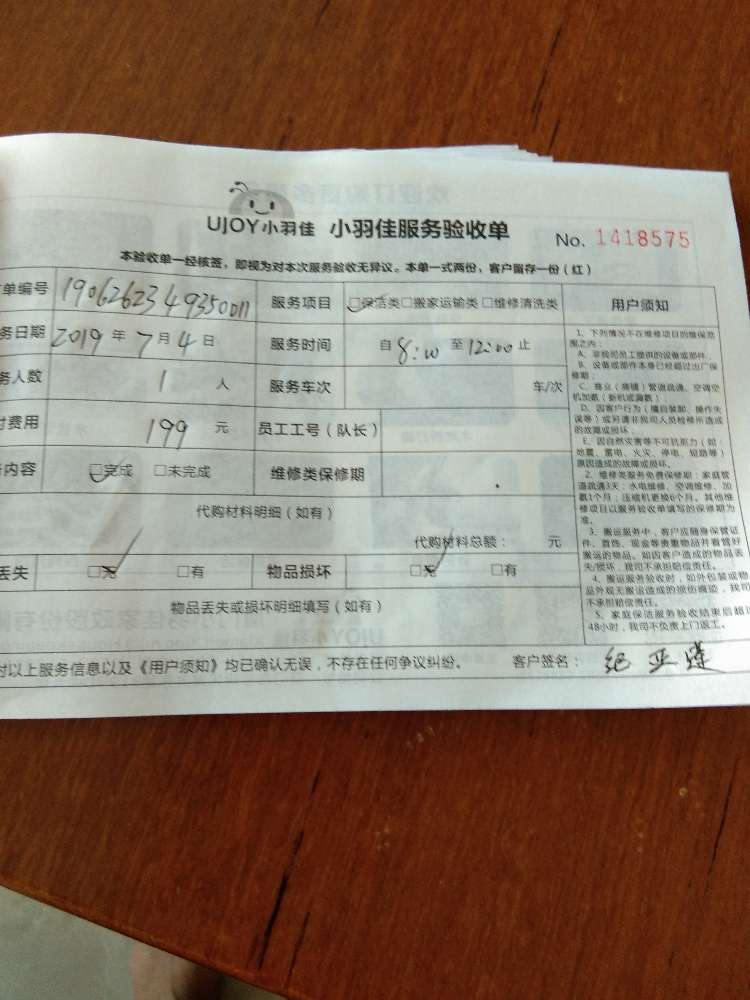 UJOY小羽佳 小羽佳服务验收单 No. 1418575
本验收单一经核签，即视为对本次服务验收无异议。本单一式两份，客户留存一份（红）
单编号 1906262349350011 服务项目 □保洁类□搬家运输类□维修清洗类 用户须知
务日期 2019 年 7 月 4 日 服务时间 自 8:00 至 12:00 止
务人数 1 人 服务车次 车/次
付费用 199 元 员工工号（队长）
内容 □完成 □未完成 维修类保修期
代购材料明细（如有）
代购材料总额： 元
丢失 □无 □有 物品损坏 □无 □有
物品丢失或损坏明细填写（如有）
对以上服务信息以及《用户须知》均已确认无误，不存在任何争议纠纷。 客户签名： 纪亚
1、下列情况不在维修项目的维保范
围之内：
A、非我司员工提供的设备或部件
B、设备或部件本身已经超过出厂保
修期；
C、商业（商铺）管道疏通、空调空
机加氟（新机或漏氟）
D、因客户行为（擅自装卸、操作失
误等）或另请非我司人员检修所造成
的故障或损坏；
E、因自然灾害等不可抗能力（如
地震、雷电、火灾、停电、短路等）
原因造成的故障或损坏。
2、维修类服务免费保修期：家庭管
道疏通3天；水电维修、空调维修、加
氟1个月；压缩机更换6个月。其他维
修项目以服务验收单填写的保修期为
准。
3、搬运服务中，客户应随身保管证
件、首饰、现金等贵重物品并看管好
搬运的物品。如因客户造成的物品丢
失/损坏，我司不承担赔偿责任。
4、搬运服务验收时，如外包装或物
品外观无搬运造成的损伤痕迹，我司
不承担赔偿责任。
5、家庭保洁服务验收结束后超过
48小时，我司不负责上门返工。